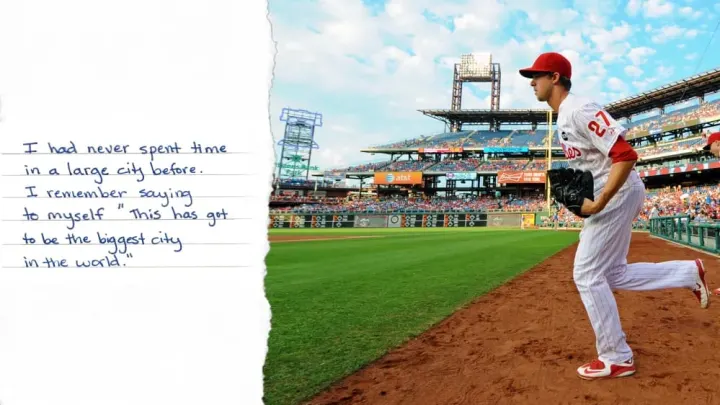 I had never spent time
in a large city before.
I remember saying
to myself "This has got
to be the biggest city
in the world."
27
at&t
Budweiser